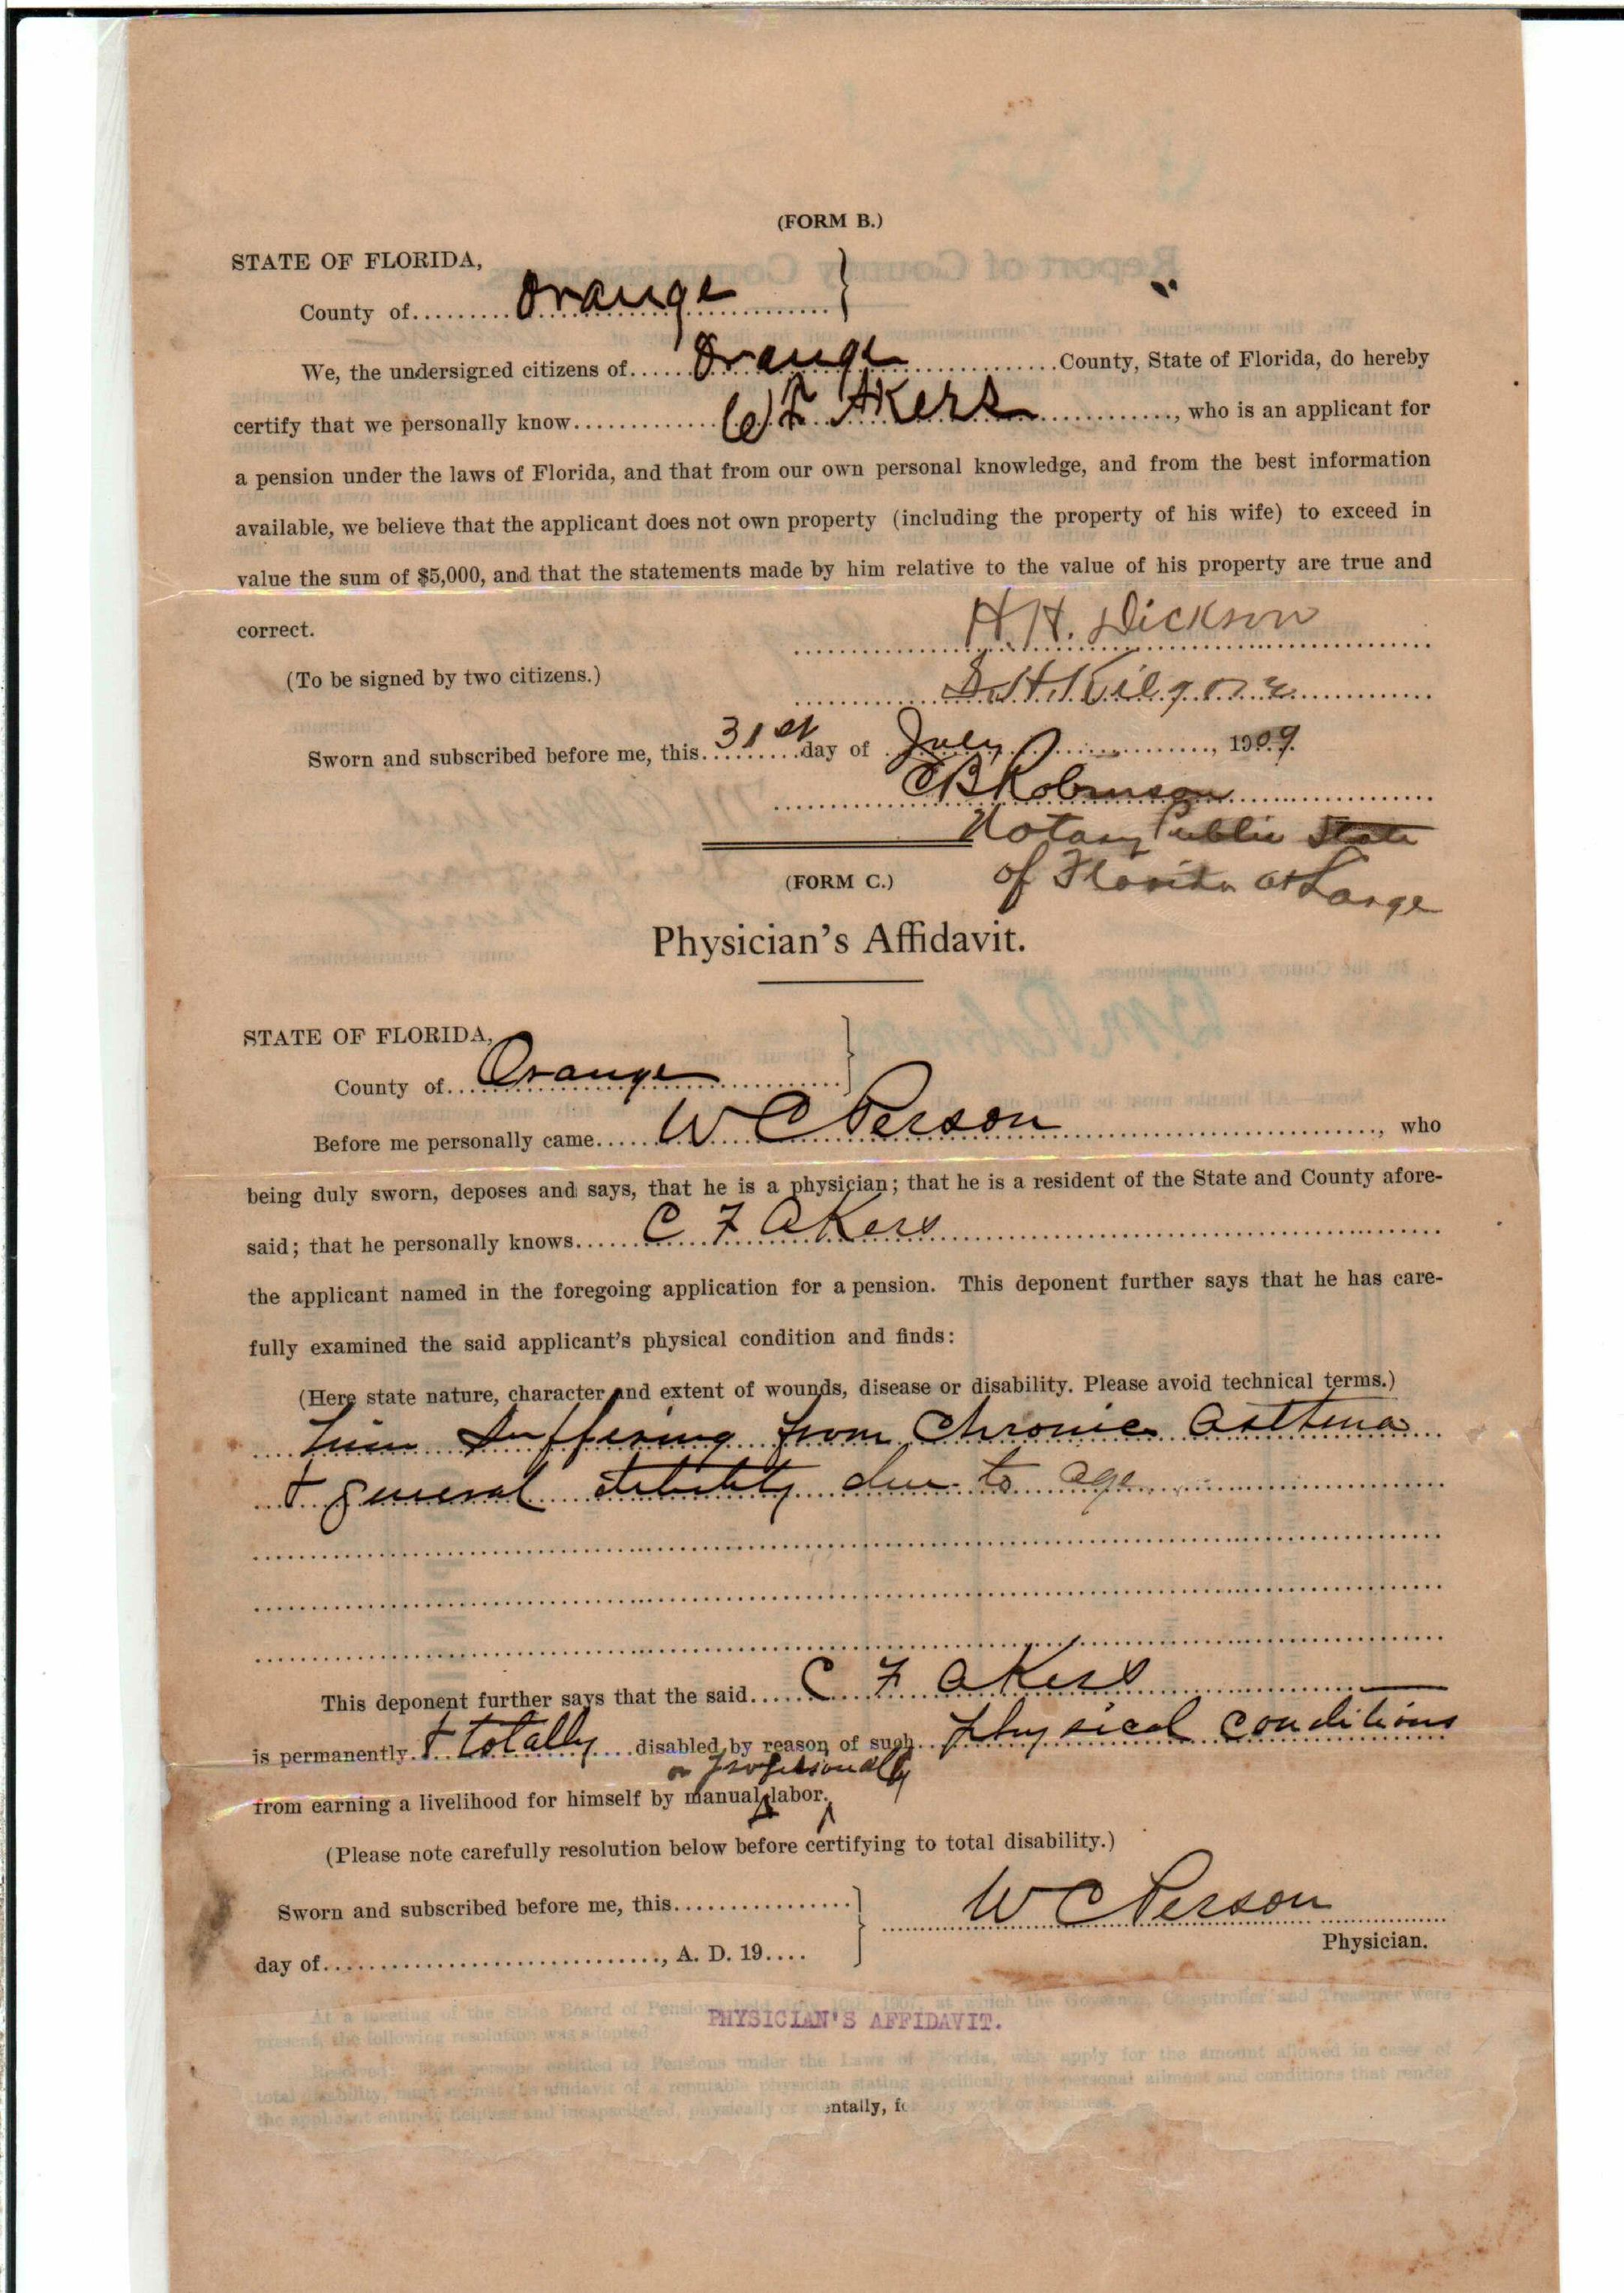 (FORM B.)
STATE OF FLORIDA,
County of.........Orange..........
We, the undersigned citizens of.....Orange..............County, State of Florida, do hereby
certify that we personally know............. C F Akers............., who is an applicant for
a pension under the laws of Florida, and that from our own personal knowledge, and from the best information
available, we believe that the applicant does not own property (including the property of his wife) to exceed in
value the sum of $5,000, and that the statements made by him relative to the value of his property are true and
correct.
H. H. Dickson
(To be signed by two citizens.)
S. H. Kilgore
Sworn and subscribed before me, this 31st day of July, 1909.
C B Robinson
Notary Public State
of Florida at Large
(FORM C.)
Physician's Affidavit.
STATE OF FLORIDA,
County of...Orange..........
Before me personally came.....W C Person.............................., who
being duly sworn, deposes and says, that he is a physician; that he is a resident of the State and County afore-
said; that he personally knows......C F Akers
the applicant named in the foregoing application for a pension. This deponent further says that he has care-
fully examined the said applicant's physical condition and finds:
(Here state nature, character and extent of wounds, disease or disability. Please avoid technical terms.)
him suffering from Chronic Asthma
& general debility due to age
This deponent further says that the said.....C F Akers
is permanently & totally disabled by reason of such physical conditions
or professionally
from earning a livelihood for himself by manual labor.
(Please note carefully resolution below before certifying to total disability.)
Sworn and subscribed before me, this................
W C Person
day of..............................., A. D. 19....
Physician.
At a meeting of the State Board of Pensions 1907, at which the Governor, Comptroller and Treasurer were
PHYSICIAN'S AFFIDAVIT.
present, the following resolution was adopted
entitled to Pensions under the Laws of Florida, who apply for the amount allowed in cases of
total disability, affidavit of a reputable physician stating specifically the personal ailment and conditions that render
the applicant entirely helpless and incapacitated, physically or mentally, for any work or business.